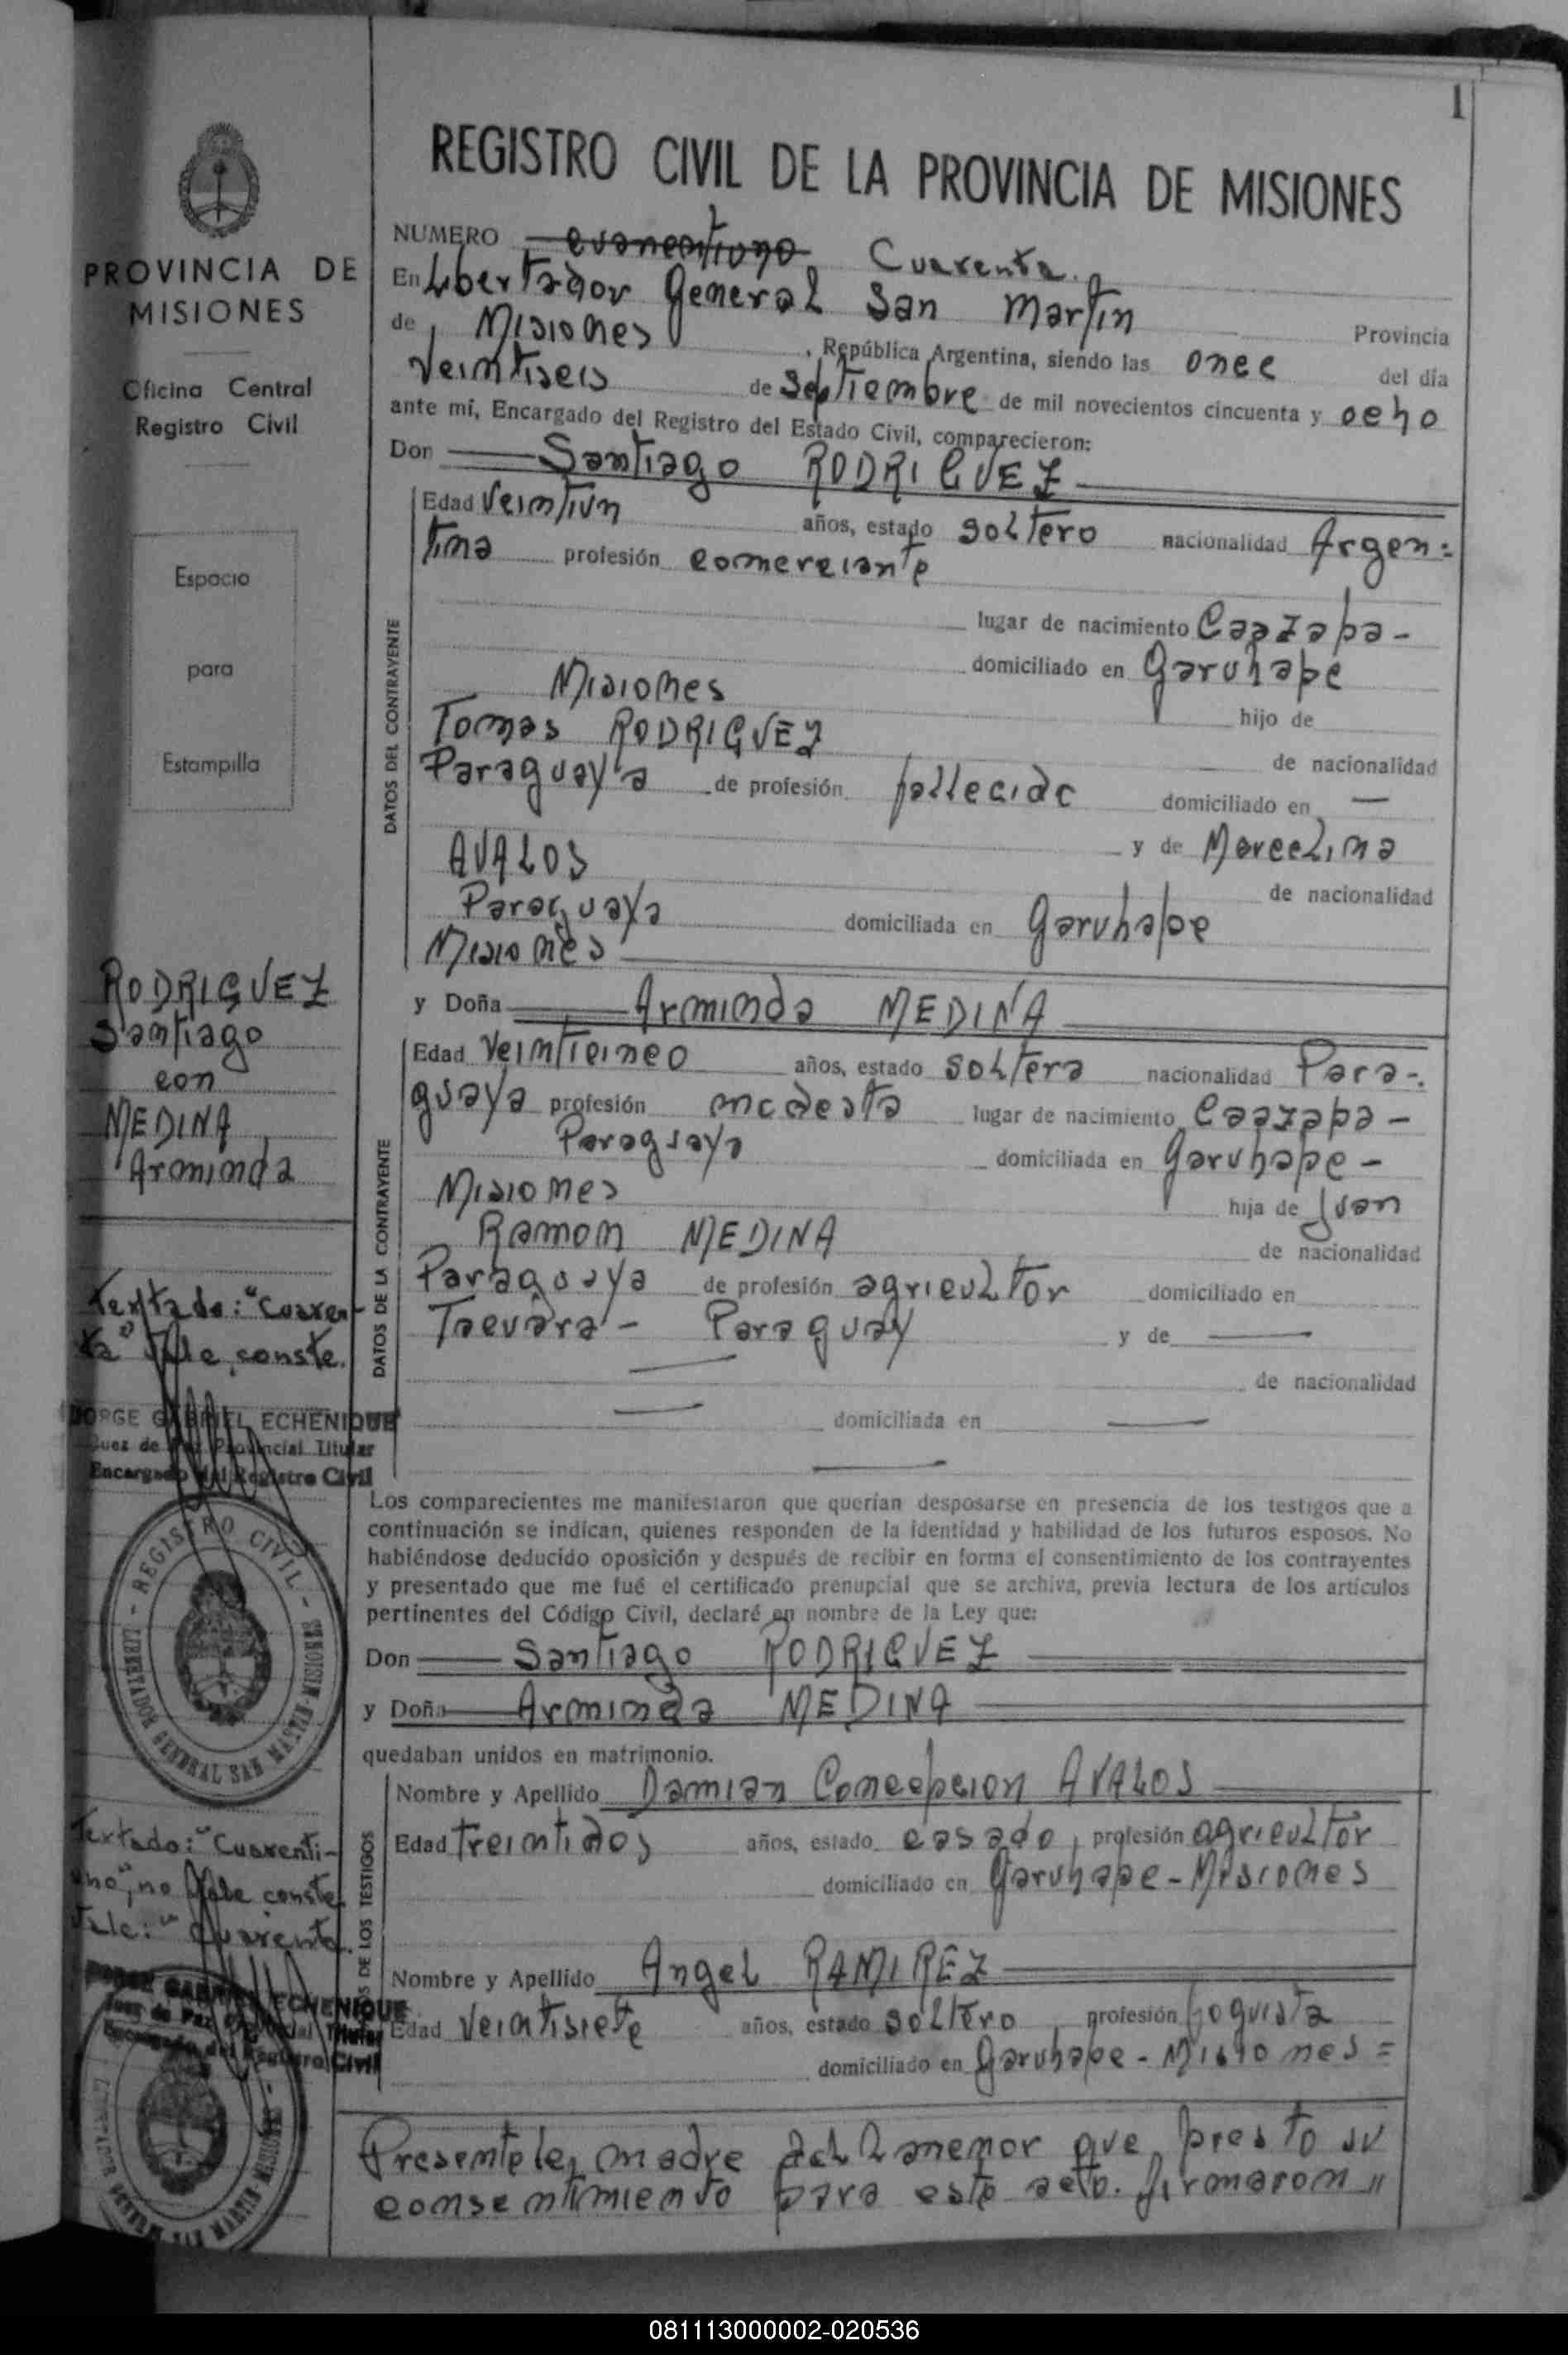 1
REGISTRO CIVIL DE LA PROVINCIA DE MISIONES
NUMERO cuarentiuno Cuarenta.
En Libertador General San Martin Provincia
de Misiones, República Argentina, siendo las once del día
veintiseis de septiembre de mil novecientos cincuenta y ocho
ante mí, Encargado del Registro del Estado Civil, comparecieron:
Don Santiago RODRIGUEZ
DATOS DEL CONTRAYENTE
Edad veintiun años, estado soltero nacionalidad Argen=
tina profesión comerciante
lugar de nacimiento Caazapa-
domiciliado en Garuhape
Misiones hijo de
Tomas RODRIGUEZ de nacionalidad
Paraguaya de profesión fallecido domiciliado en —
y de Marcelina
AVALOS de nacionalidad
Paraguaya domiciliada en Garuhape
Misiones
y Doña Arminda MEDINA
DATOS DE LA CONTRAYENTE
Edad veinticinco años, estado soltera nacionalidad Para-
guaya profesión modesta lugar de nacimiento Caazapa-
Paraguaya domiciliada en Garuhape-
Misiones hija de Juan
Ramon MEDINA de nacionalidad
Paraguaya de profesión agricultor domiciliado en
Tacuara- Paraguay y de —
— de nacionalidad
— domiciliada en —
—
Los comparecientes me manifestaron que querían desposarse en presencia de los testigos que a
continuación se indican, quienes responden de la identidad y habilidad de los futuros esposos. No
habiéndose deducido oposición y después de recibir en forma el consentimiento de los contrayentes
y presentado que me fué el certificado prenupcial que se archiva, previa lectura de los artículos
pertinentes del Código Civil, declaré en nombre de la Ley que:
Don Santiago RODRIGUEZ
y Doña Arminda MEDINA
quedaban unidos en matrimonio.
DE LOS TESTIGOS
Nombre y Apellido Damian Concepcion AVALOS
Edad treintidos años, estado casado, profesión agricultor
domiciliado en Garuhape-Misiones
Nombre y Apellido Angel RAMIREZ
Edad veintisiete años, estado soltero, profesión foguista
domiciliado en Garuhape-Misiones=
Presente la madre del menor que presto su
consentimiento para este acto. firmaron"
PROVINCIA DE
MISIONES
Oficina Central
Registro Civil
Espacio
para
Estampilla
RODRIGUEZ
Santiago
con
MEDINA
Arminda
Textado: "Cuaren-
ta" Vale, conste.
JORGE GABRIEL ECHENIQUE
Juez de Paz Provincial Titular
Encargado del Registro Civil
- REGISTRO CIVIL -
LIBERTADOR GENERAL SAN MARTIN-MISIONES
Textado: "Cuarenti-
uno", no Vale conste
Vale: "Cuarenta.
JORGE GABRIEL ECHENIQUE
Juez de Paz Provincial Titular
Encargado del Registro Civil
081113000002-020536